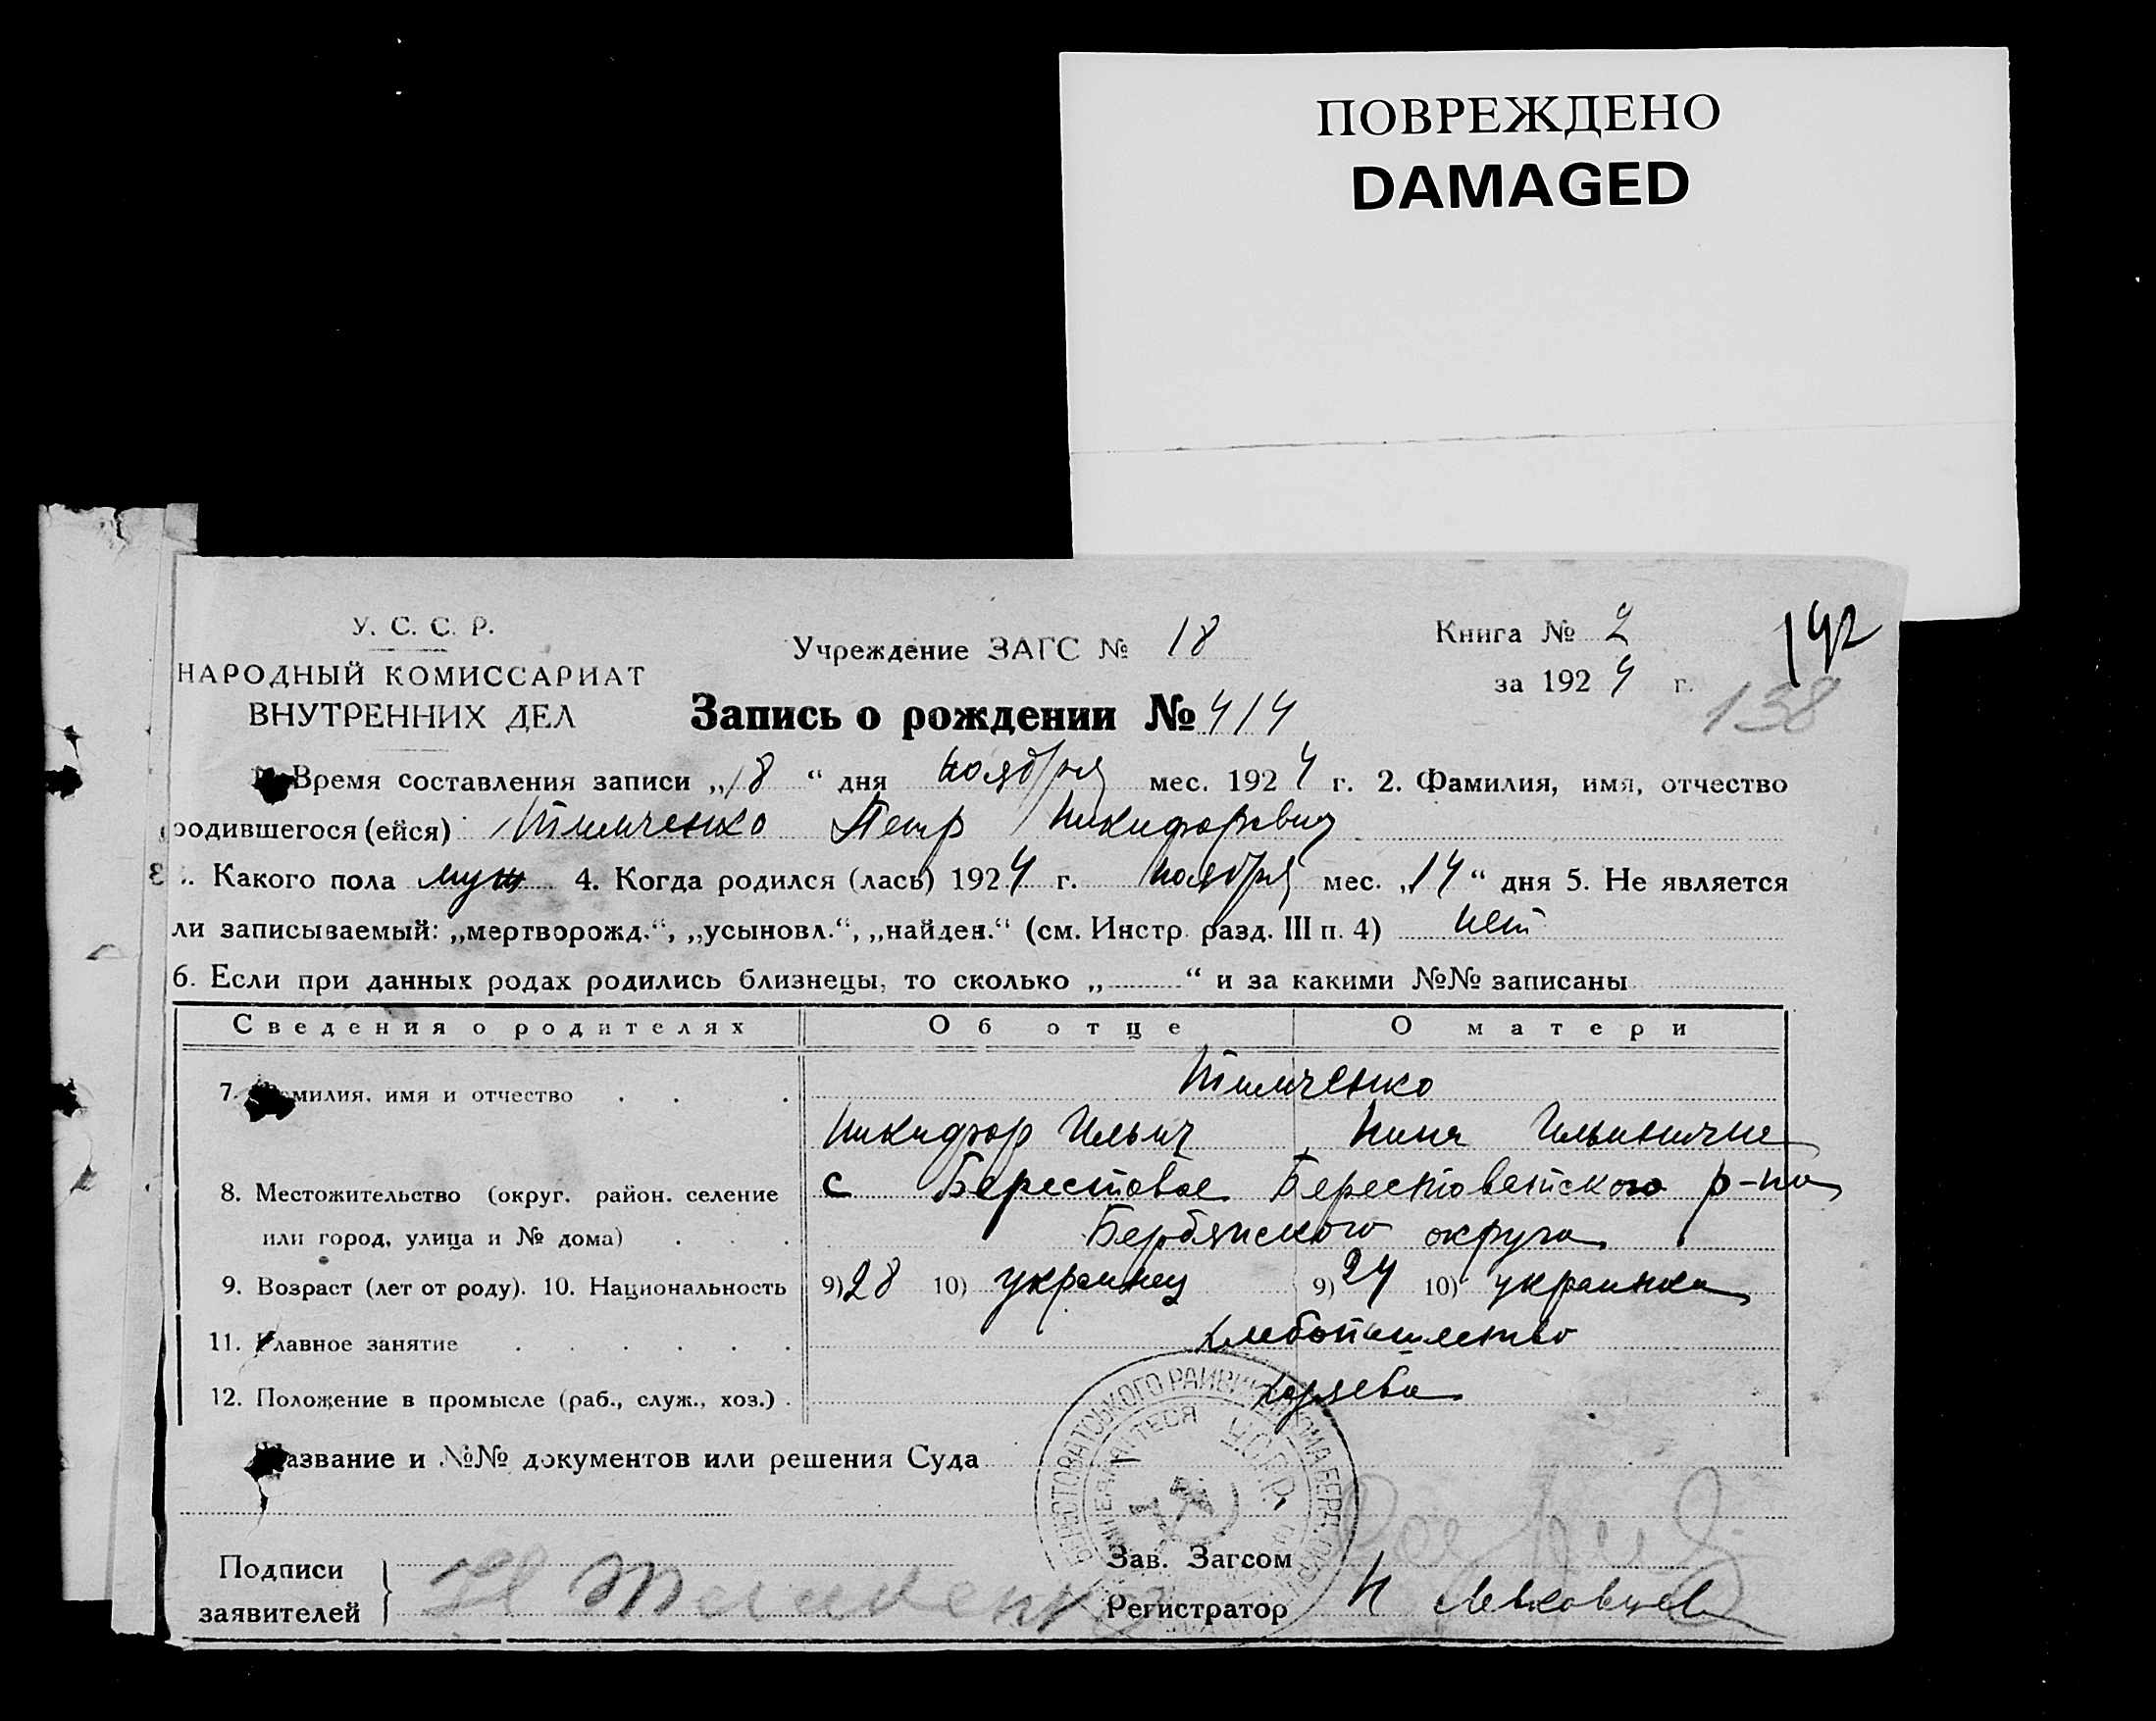 ПОВРЕЖДЕНО
DAMAGED
У. С. С. Р.
НАРОДНЫЙ КОМИССАРИАТ
ВНУТРЕННИХ ДЕЛ
Учреждение ЗАГС № 18
Книга № 2
за 1924 г.
142
138
Запись о рождении № 414
Время составления записи „18“ дня ноября мес. 1924 г. 2. Фамилия, имя, отчество
родившегося (ейся) Тимченко Петр Никифорович
3. Какого пола муж 4. Когда родился (лась) 1924 г. ноября мес. „14“ дня 5. Не является
ли записываемый: „мертворожд.“, „усыновл.“, „найден.“ (см. Инстр. разд. III п. 4) нет
6. Если при данных родах родились близнецы, то сколько „ “ и за какими №№ записаны
Сведения о родителях Об отце О матери
7. Фамилия, имя и отчество Тимченко
Никифор Ильич Нина Ильинична
8. Местожительство (округ. район. селение с Берестовое Берестоветского р-на
или город, улица и № дома) Бердянского округа
9. Возраст (лет от роду). 10. Национальность 9) 28 10) украинец 9) 24 10) украинка
11. Главное занятие хлебопашество
12. Положение в промысле (раб., служ., хоз.) хозяева
Название и №№ документов или решения Суда
У.С.Р.Р.
Подписи
заявителей
Н Тимченко
Зав. Загсом
Регистратор Н